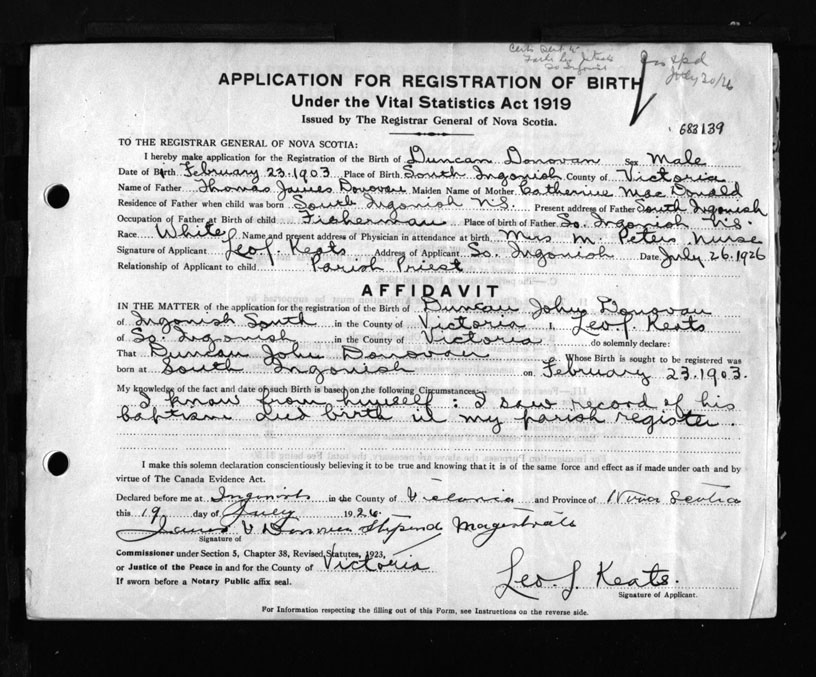 July 20/26
APPLICATION FOR REGISTRATION OF BIRTH
Under the Vital Statistics Act 1919
Issued by The Registrar General of Nova Scotia.
683139
TO THE REGISTRAR GENERAL OF NOVA SCOTIA:
I hereby make application for the Registration of the Birth of Duncan Donovan Sex Male
Date of Birth February 23.1903 Place of Birth South Ingonish County of Victoria
Name of Father Thomas James Donovan Maiden Name of Mother Catherine Mac Donald
Residence of Father when child was born South Ingonish N.S. Present address of Father South Ingonish
Occupation of Father at Birth of child Fisherman Place of birth of Father So. Ingonish N.S.
Race White Name and present address of Physician in attendance at birth Mrs M. Peters Nurse
Signature of Applicant Leo J. Keats Address of Applicant So. Ingonish Date July 26.1926
Relationship of Applicant to child Parish Priest
AFFIDAVIT
IN THE MATTER of the application for the registration of the Birth of Duncan John Donovan
of Ingonish South in the County of Victoria I, Leo J. Keats
of So. Ingonish in the County of Victoria do solemnly declare:
That Duncan John Donovan Whose Birth is sought to be registered was
born at South Ingonish on February 23.1903.
My knowledge of the fact and date of such Birth is based on the following Circumstances:—
I know from himself: I saw record of his
baptism and birth in my parish register.
I make this solemn declaration conscientiously believing it to be true and knowing that it is of the same force and effect as if made under oath and by
virtue of The Canada Evidence Act.
Declared before me at Ingonish in the County of Victoria and Province of Nova Scotia
this 19 day of July 1926.
James V Stipend Magistrate
Signature of
Commissioner under Section 5, Chapter 38, Revised Statutes, 1923,
or Justice of the Peace in and for the County of Victoria
If sworn before a Notary Public affix seal.
Leo. J. Keats.
Signature of Applicant.
For Information respecting the filling out of this Form, see Instructions on the reverse side.